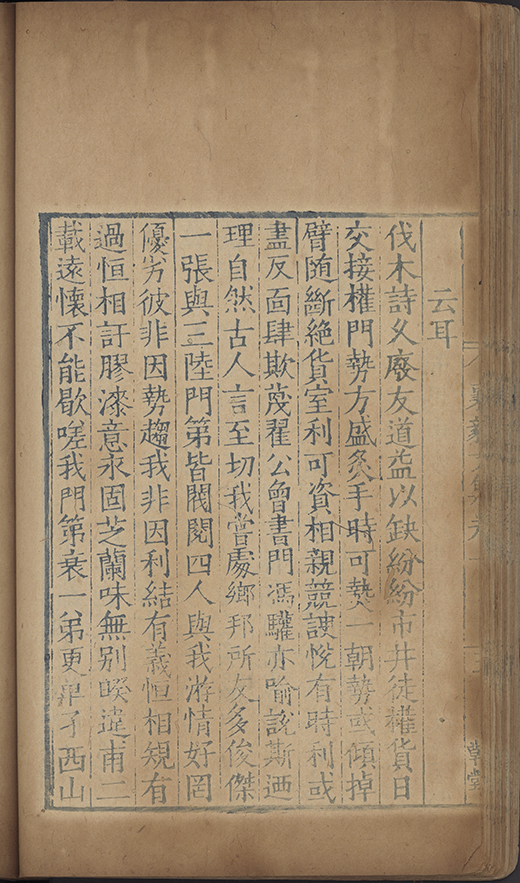 云耳
伐木詩乆廢友道益以缺紛紛市井徒糴貨日
交接權門勢方盛炙手時可𤍠一朝勢或傾掉
臂随斷絶貨室利可資相親競諛悅有時利或
盡反面肆欺蔑翟公曾書門馮驩亦喻說斯迺
理自然古人言至切我嘗處鄉邦所友多俊傑
一張與三陸門第皆閥閱四人與我游情好罔
優劣彼非因勢趨我非因利結有義恒相規有
過恒相訐膠漆意永固芝蘭味無別暌違甫二
載遠懷不能歇嗟我門第衰一弟更孑西山
草堂